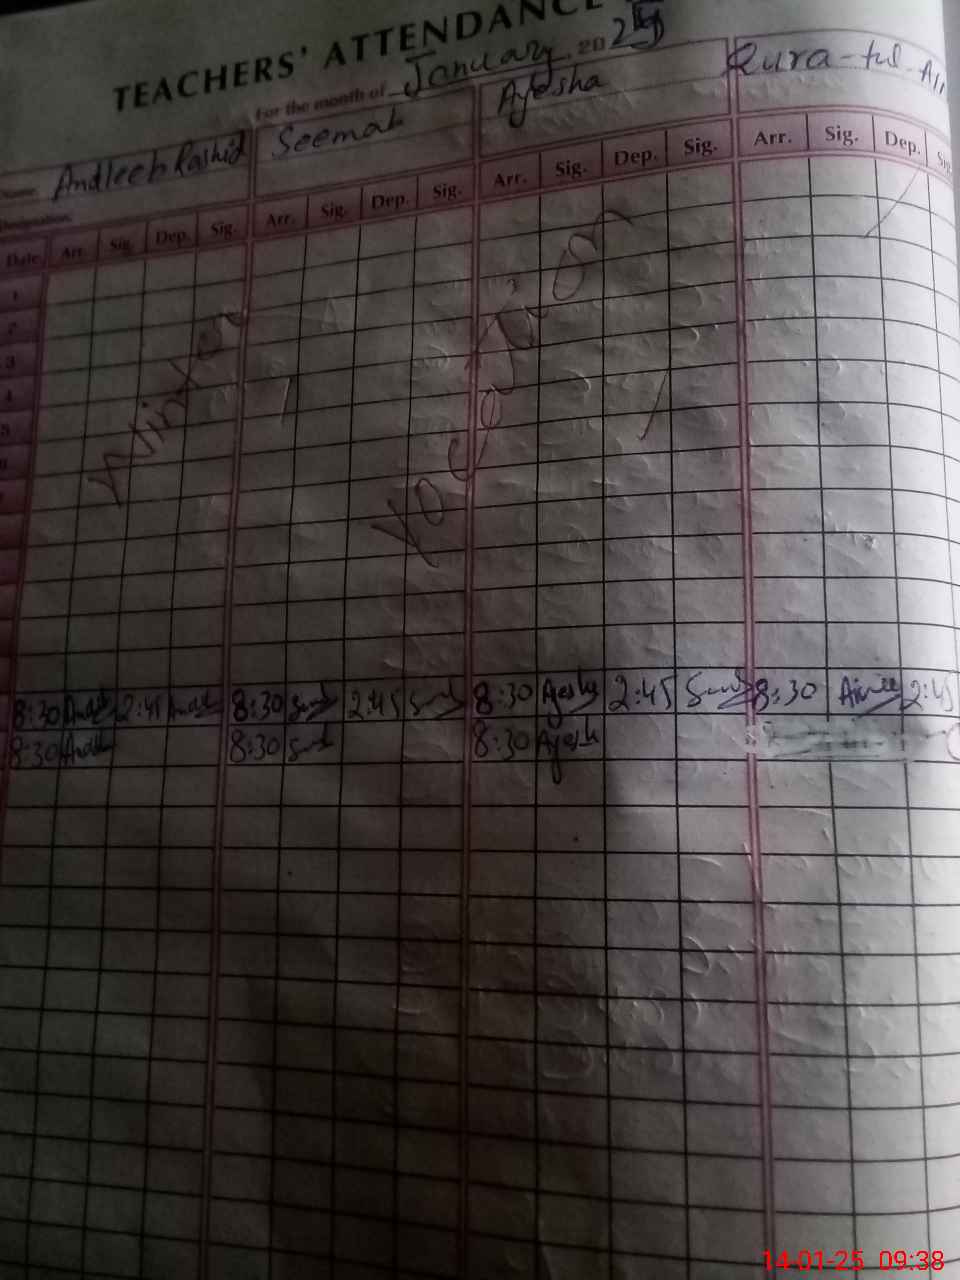 TEACHERS' ATTENDANCE
For the month of January 2025
Name Andleeb Rashid Seemab Ayesha Qura-tul-Ai
Designation
Date Arr. Sig. Dep. Sig. Arr. Sig. Dep. Sig. Arr. Sig. Dep. Sig. Arr. Sig. Dep. Sig
1
2
3
4
5
Winter Vocation
8:30 Andl 2:45 Andl 8:30 2:45 8:30 Ayesha 2:45 8:30 2:45
8:30 Andl 8:30 8:30 Ayesh
14-01-25 09:38